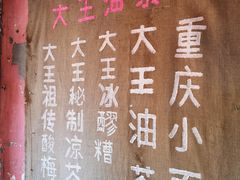 大王油茶
重庆小面
大王油茶
大王冰醪糟
大王秘制凉茶
大王祖传酸梅